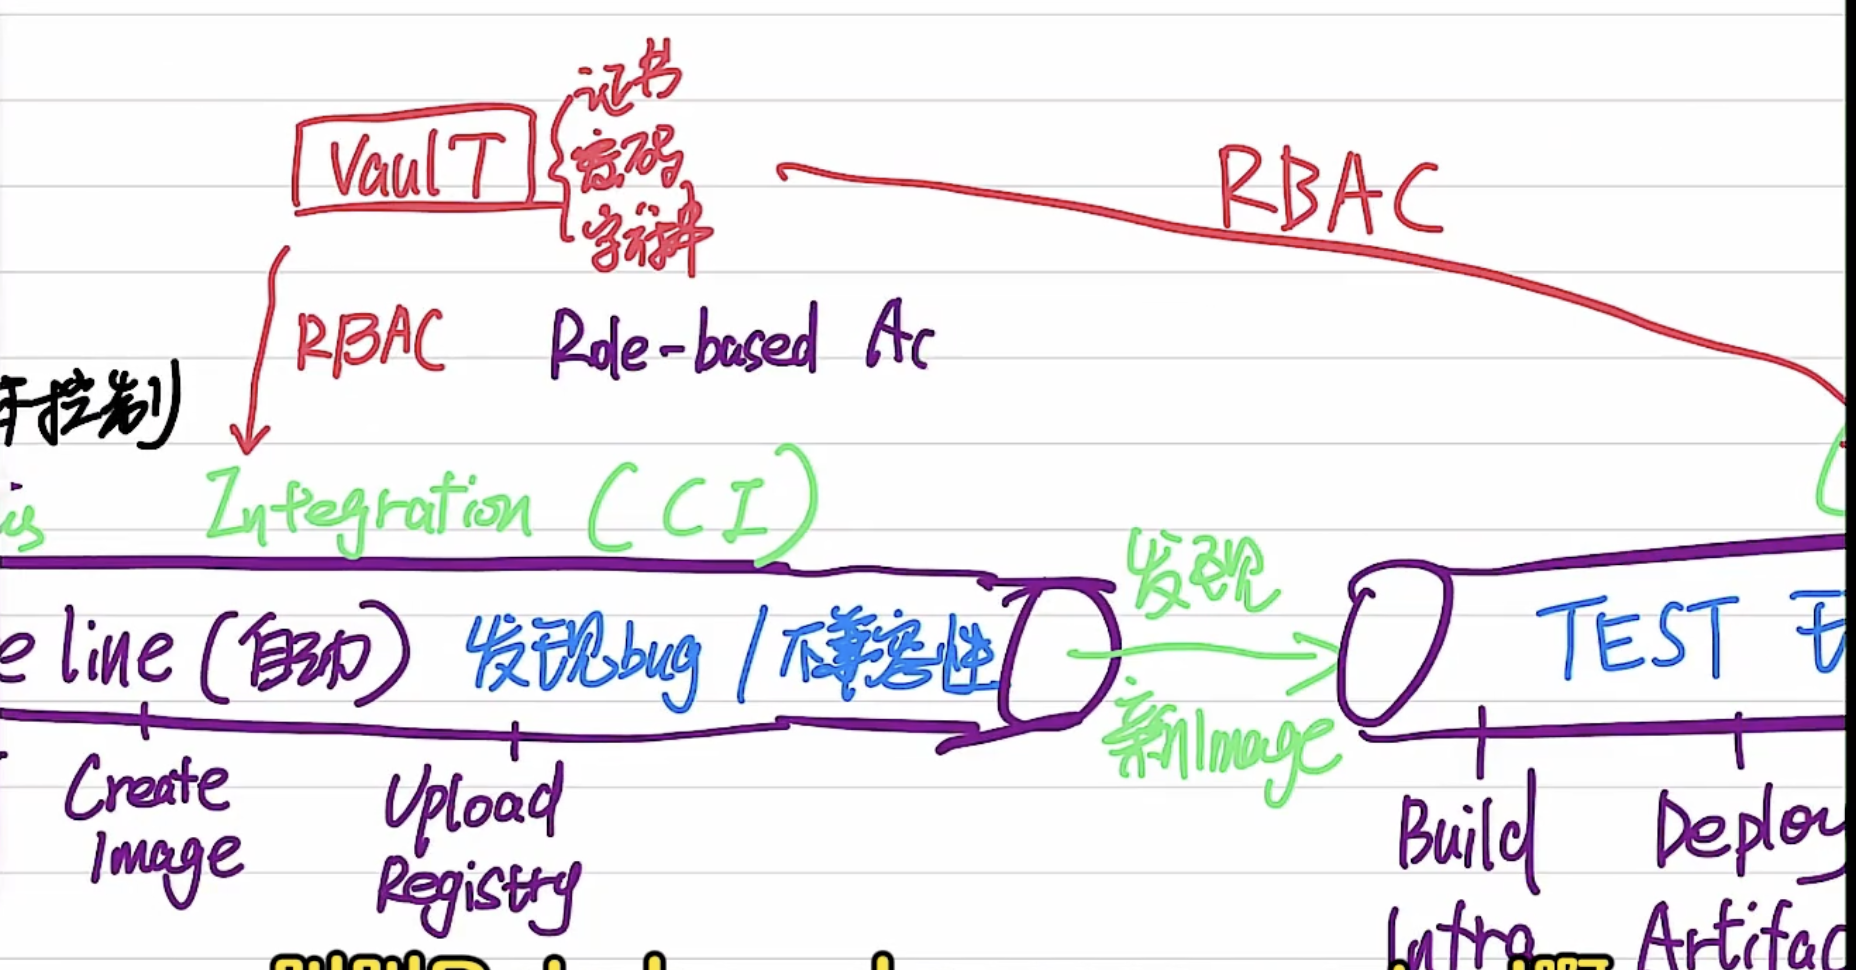 证书
VaulT
密码
RBAC
字符串
RBAC
Role-based Ac
控制
Integration (CI)
发现
e line (自动)
发现bug / 不兼容性
TEST
新Image
Create
Image
Upload
Registry
Build
Infra
Deploy
Artifac